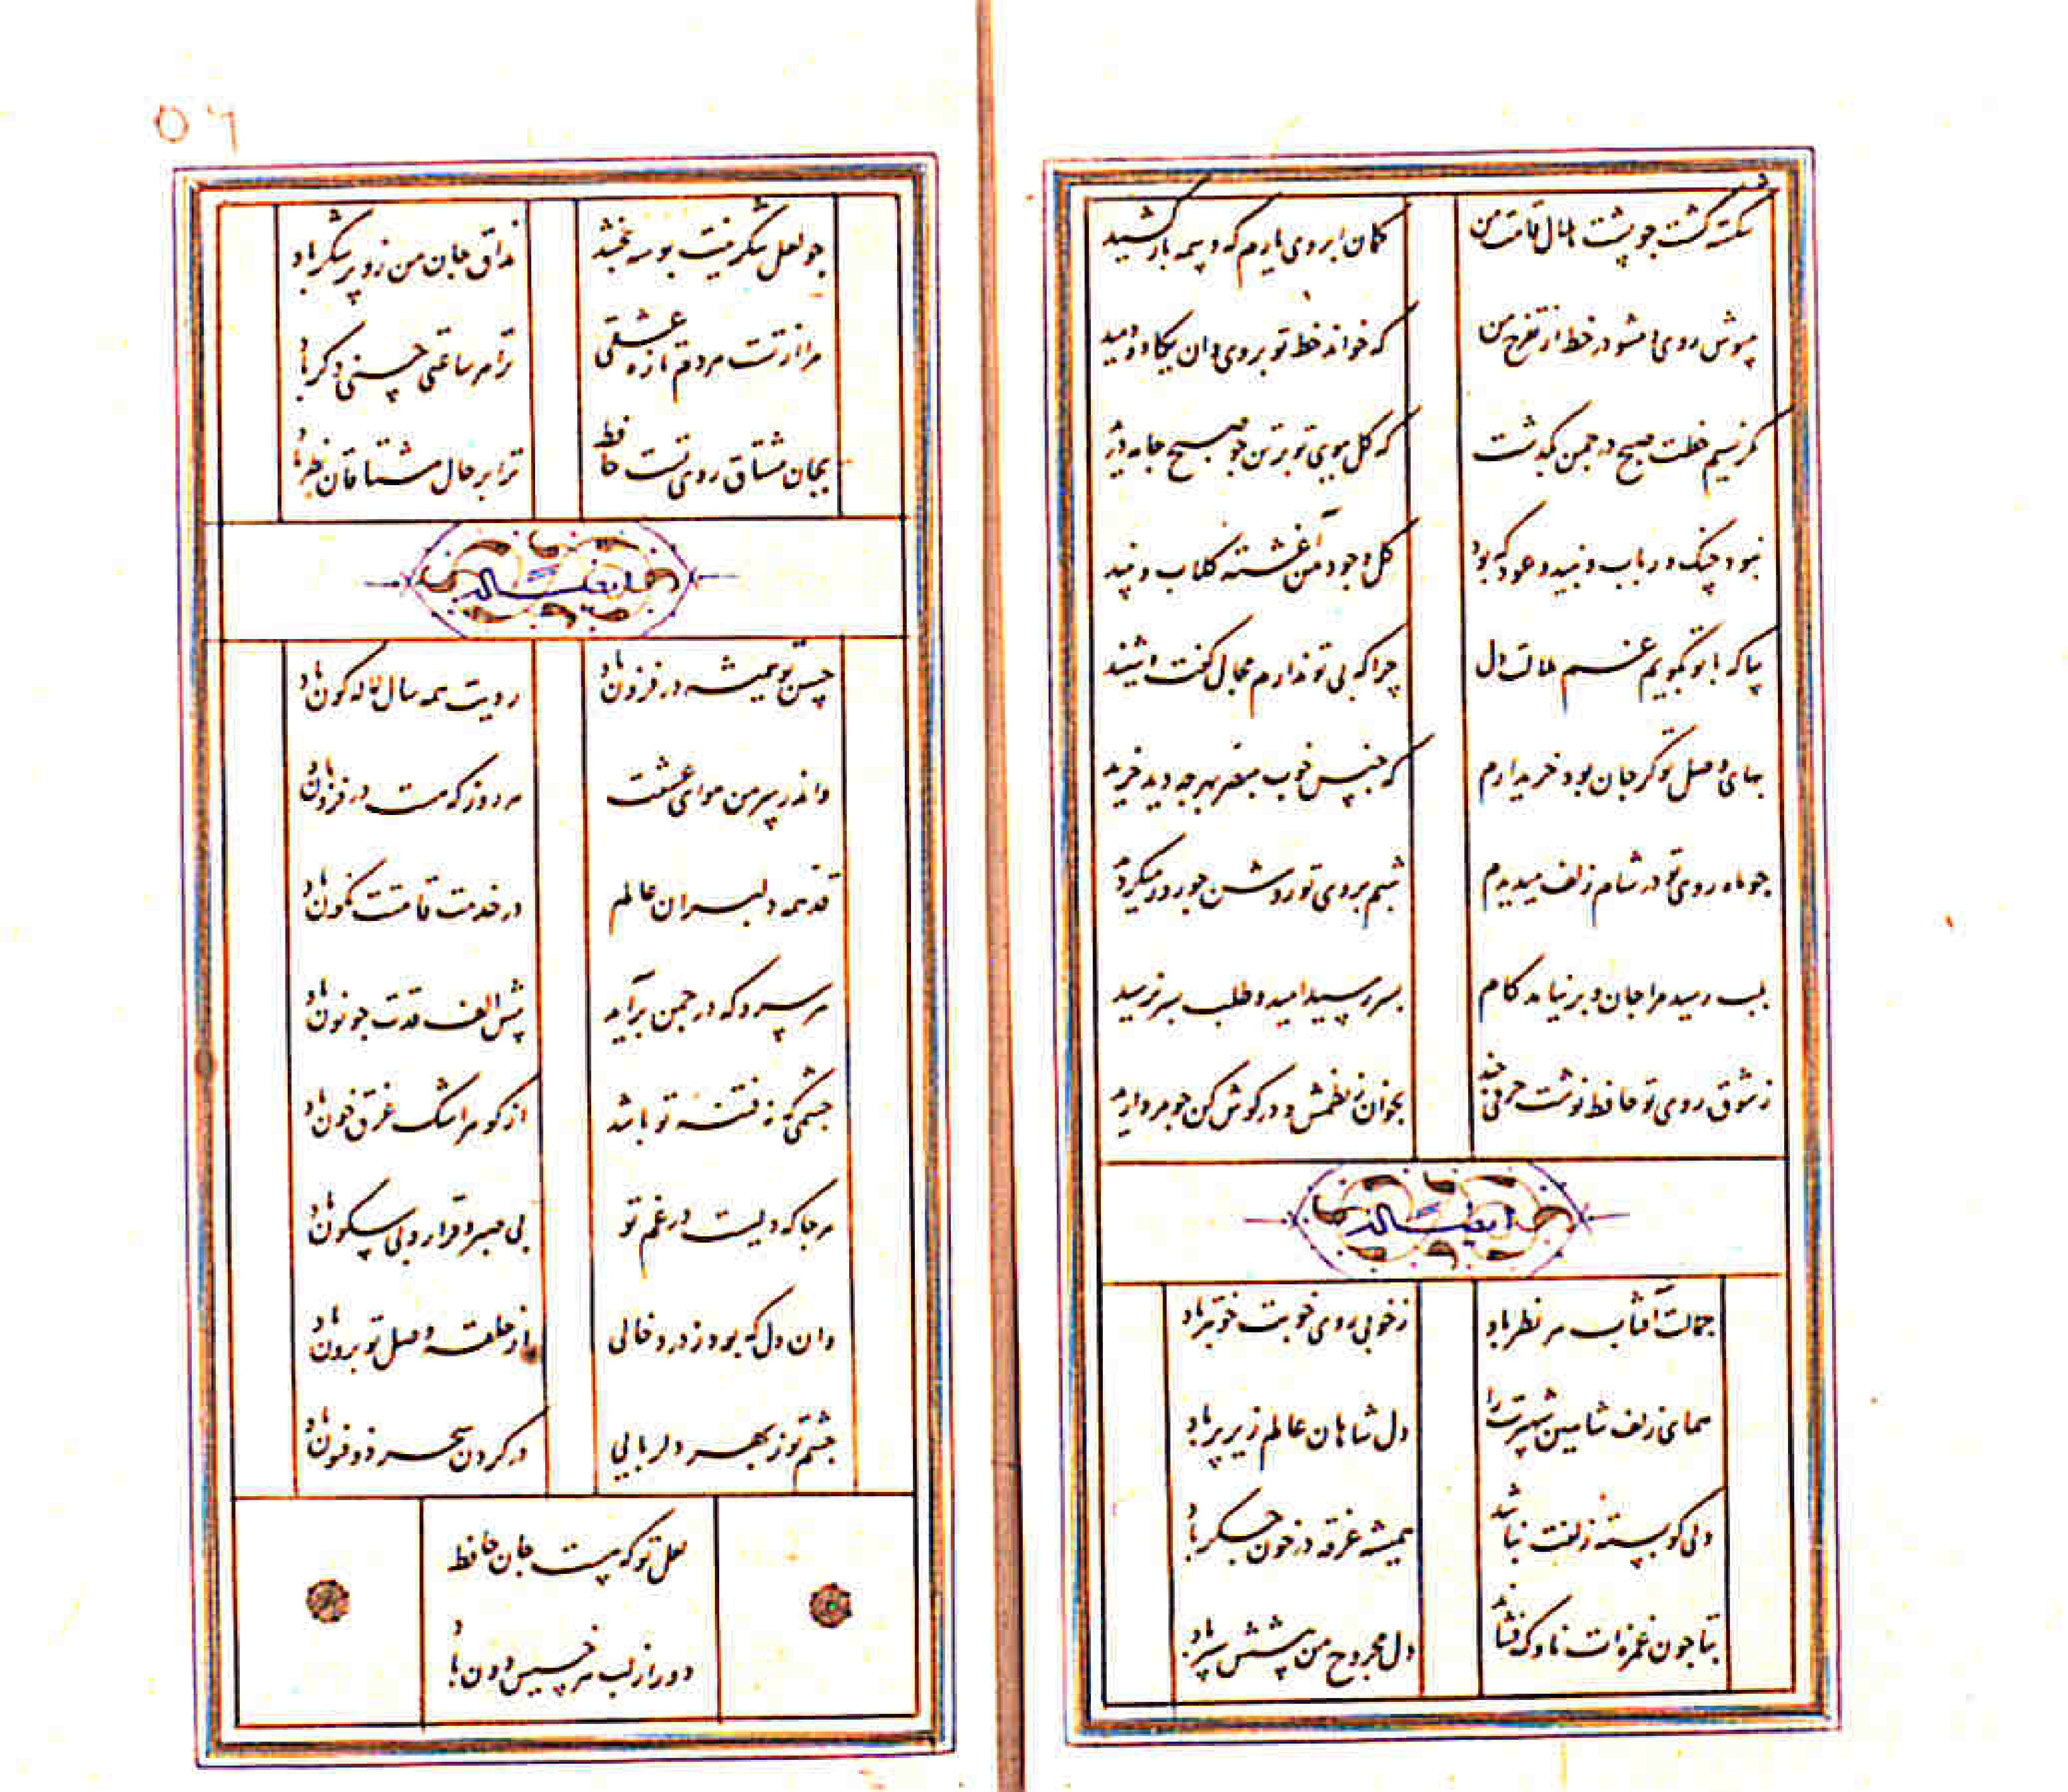 شکسته گشت چو پشت هلال قامت من
کمان ابروی یارم که وسمه باز کشید
مپوش روی و مشو در خط از تفرج من
که خواند خط تو بر روی وان یکاد و دمید
مگر نسیم خطت صبح در چمن بگذشت
که گل ببوی تو بر تن چو صبح جامه درید
نبود چنگ و رباب و نبید و عود که بود
گل وجود من آغشته گلاب و نبید
بیا که با تو بگویم غم ملالت دل
چرا که بی تو ندارم مجال گفت و شنید
بهای وصل تو گر جان بود خریدارم
که جنس خوب مبصر بهرچه دید خرید
چو ماه روی تو در شام زلف میدیدم
شبم بروی تو روشن چو روز میگردید
بلب رسید مرا جان و برنیامد کام
بسر رسید امید و طلب بسر نرسید
ز شوق روی تو حافظ نوشت حرفی چند
بخوان ز نظمش و در گوش کن چو مروارید
ایضاله
جمالت آفتاب هر نظر باد
ز خوبی روی خوبت خوبتر باد
همای زلف شاهین شهپرت را
دل شاهان عالم زیر پر باد
دلی کو بسته زلفت نباشد
همیشه غرقه در خون جگر باد
بتا چون غمزه ات ناوک فشاند
دل مجروح من پیشش سپر باد
۵۶
چو لعل شکرینت بوسه بخشد
مذاق جان من زو پر شکر باد
مرا از تست هر دم تازه عشقی
ترا هر ساعتی حسنی دگر باد
بجان مشتاق روی تست حافظ
ترا بر حال مشتاقان نظر باد
ایضاله
حسن تو همیشه در فزون باد
رویت همه سال لاله گون باد
واندر سر من هوای عشقت
هر روز که هست در فزون باد
قد همه دلبران عالم
در خدمت قامتت نگون باد
هر سرو که در چمن برآید
پیش الف قدت چو نون باد
چشمی که نه فتنه تو باشد
از گوهر اشک غرق خون باد
هر جا که دلیست در غم تو
بی صبر و قرار و بی سکون باد
وان دل که بود ز درد خالی
از حلقه وصل تو برون باد
چشم تو ز بهر دلربایی
در کردن سحر ذو فنون باد
لعل تو که هست جان حافظ
دور از لب هر خسیس دون باد